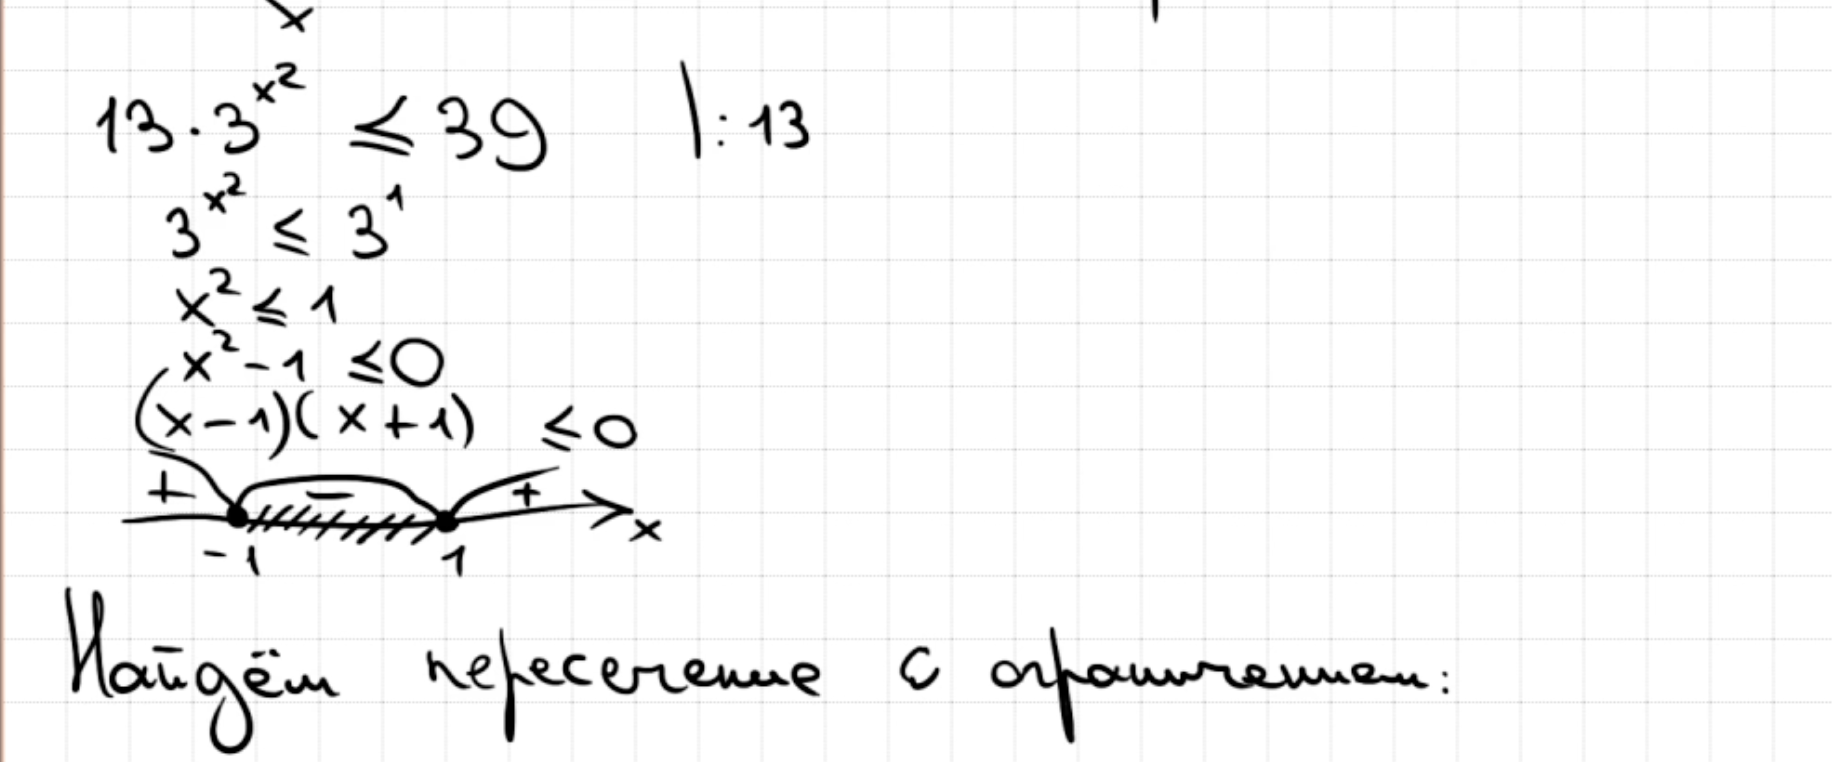 x
13·3^x² ≤ 39 |:13
3^x² ≤ 3^1
x² ≤ 1
x² - 1 ≤ 0
(x-1)(x+1) ≤ 0
+ - + x
-1 1
Найдём пересечение с ограничением: